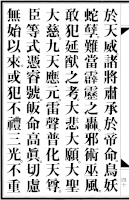 於天威諸將肅承於帝命鳥妖
蛇孽難當霹靂之轟邪術巫風
敢犯延猷之考大悲大願大聖
大慈九天應元雷聲普化天尊
臣等式憑睿號皈命高真切慮
無始以來或犯不禮三光不重